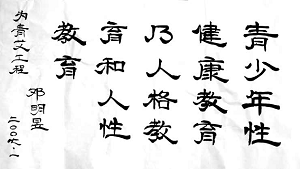 青少年性
健康教育
乃人格教
育和人性
教育
为青艾工程
邓明昱
二〇〇六.一